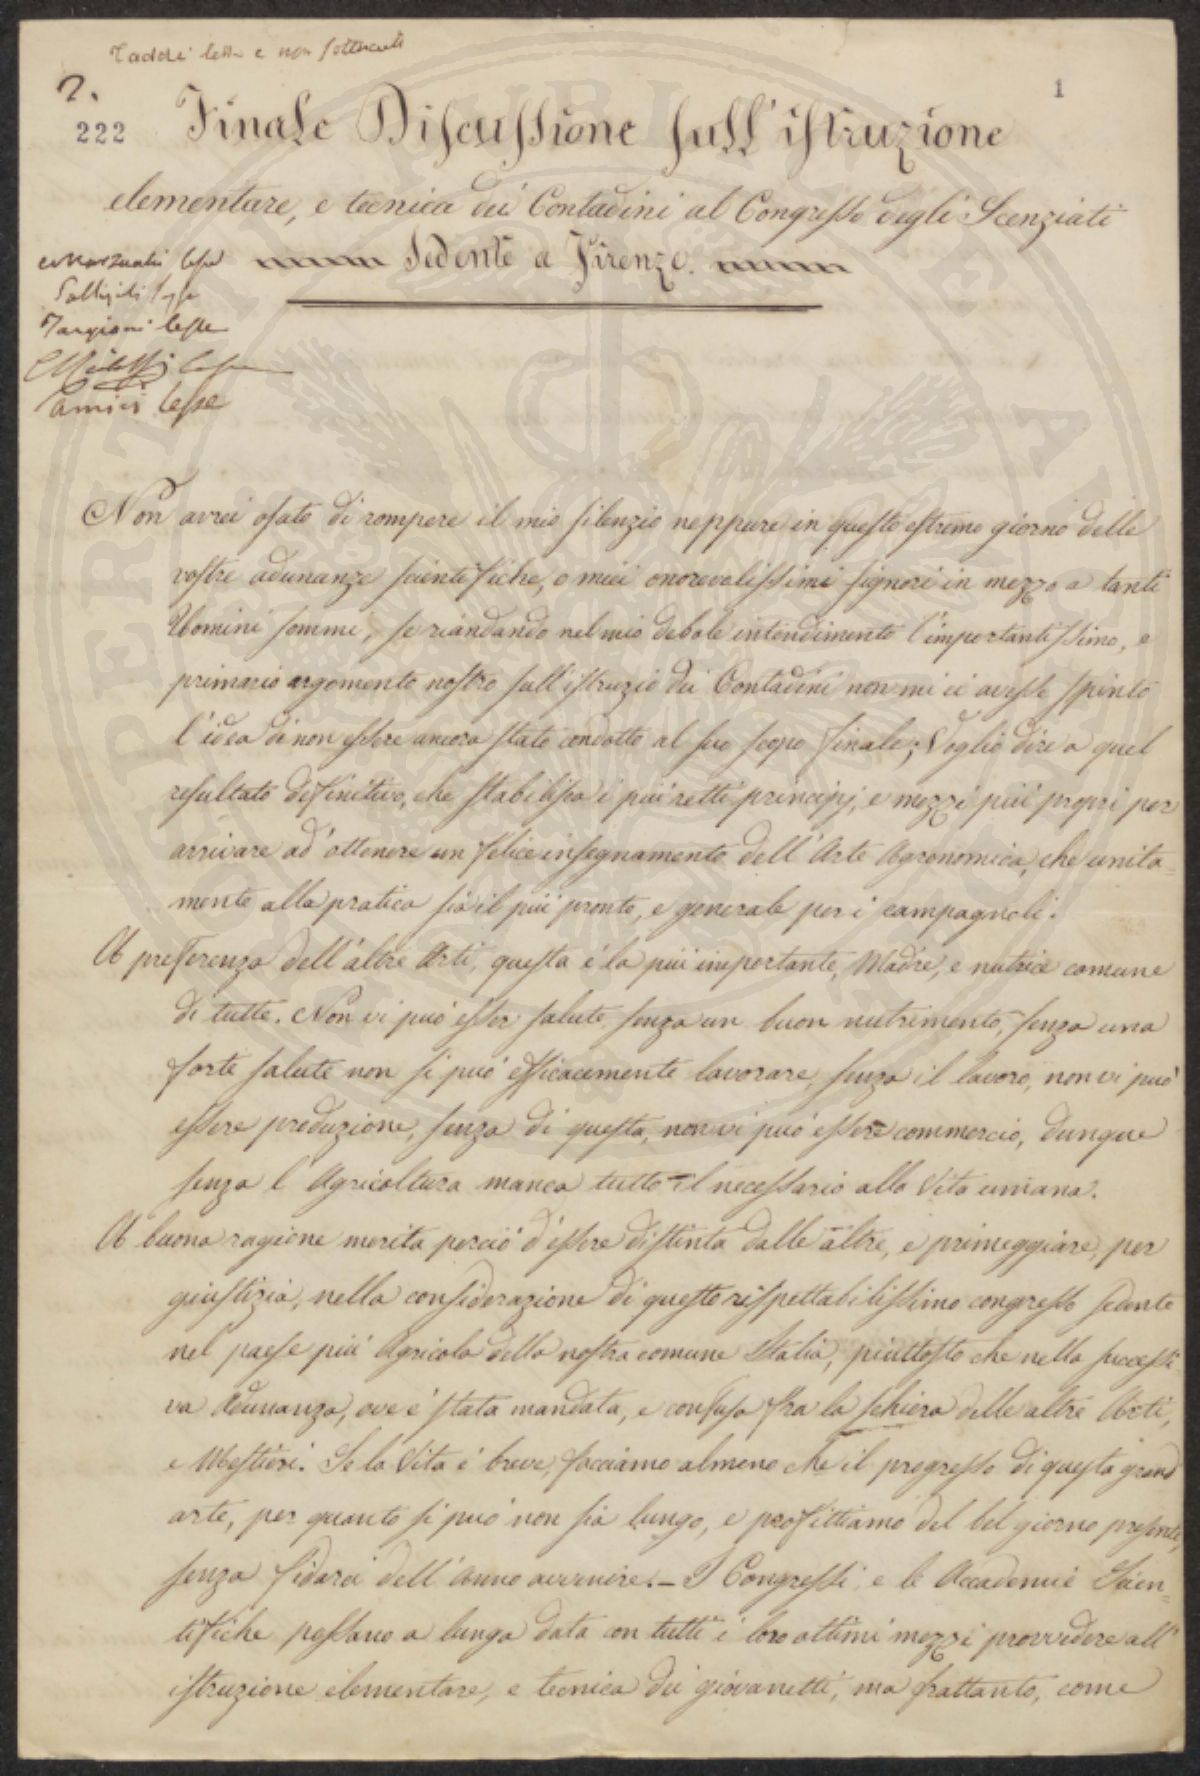 Taddei lesse e non
2.
1
222
Finale Discussione sull'istruzione
elementare, e tecnica dei Contadini al Congresso degli Scenziati
Sedente a Firenze.
lesse
lesse
Targioni lesse
Ridolfi lesse
Amici lesse
Non avrei osato di rompere il mio silenzio neppure in questo estremo giorno delle
vostre adunanze scientifiche, o miei onorevolissimi signori in mezzo a tanti
Uomini sommi, se riandando nel mio debole intendimento l'importantissimo, e
primario argomento nostro sull'istruzio dei Contadini non mi ci avesse spinto
l'idea di non essere ancora stato condotto al suo scopo finale; Voglio dire a quel
resultato definitivo, che stabilisca i piu' retti principj, e mezzi piu' propri per
arrivare ad' ottenere un felice insegnamento dell'Arte Agronomica, che unita=
mente alla pratica sia il piu' pronto, e generale per i campagnoli.
A preferenza dell'altre Arti, questa e' la piu' importante, Madre, e nutrice comune
di tutte. Non vi puo' esser salute senza un buon nutrimento, senza una
forte salute non si puo' efficacemente lavorare, senza il lavoro, non vi puo'
essere produzione, senza di questa, non vi puo' essere commercio, dunque
senza l'Agricoltura manca tutto il necessario alla Vita umana.
A buona ragione merita percio' d'essere distinta dalle altre, e primeggiare, per
giustizia, nella considerazione di questo rispettabilissimo congresso sedente
nel paese piu' Agricola della nostra comune Italia, piuttosto che nella successi
va Adunanza, ove e' stata mandata, e confusa fra la schiera delle altre Arti,
e Mestieri. Se la Vita e' breve, facciamo almeno che il progresso di questa grand
arte, per quanto si puo' non sia lungo, e profittiamo del bel giorno presente,
senza fidarci dell'Anno avvenire.- I Congressi, e le Accademie Scien=
tifiche possano a lunga data con tutti i loro ottimi mezzi provvedere all'
istruzione elementare, e tecnica dei giovanetti, ma frattanto, come